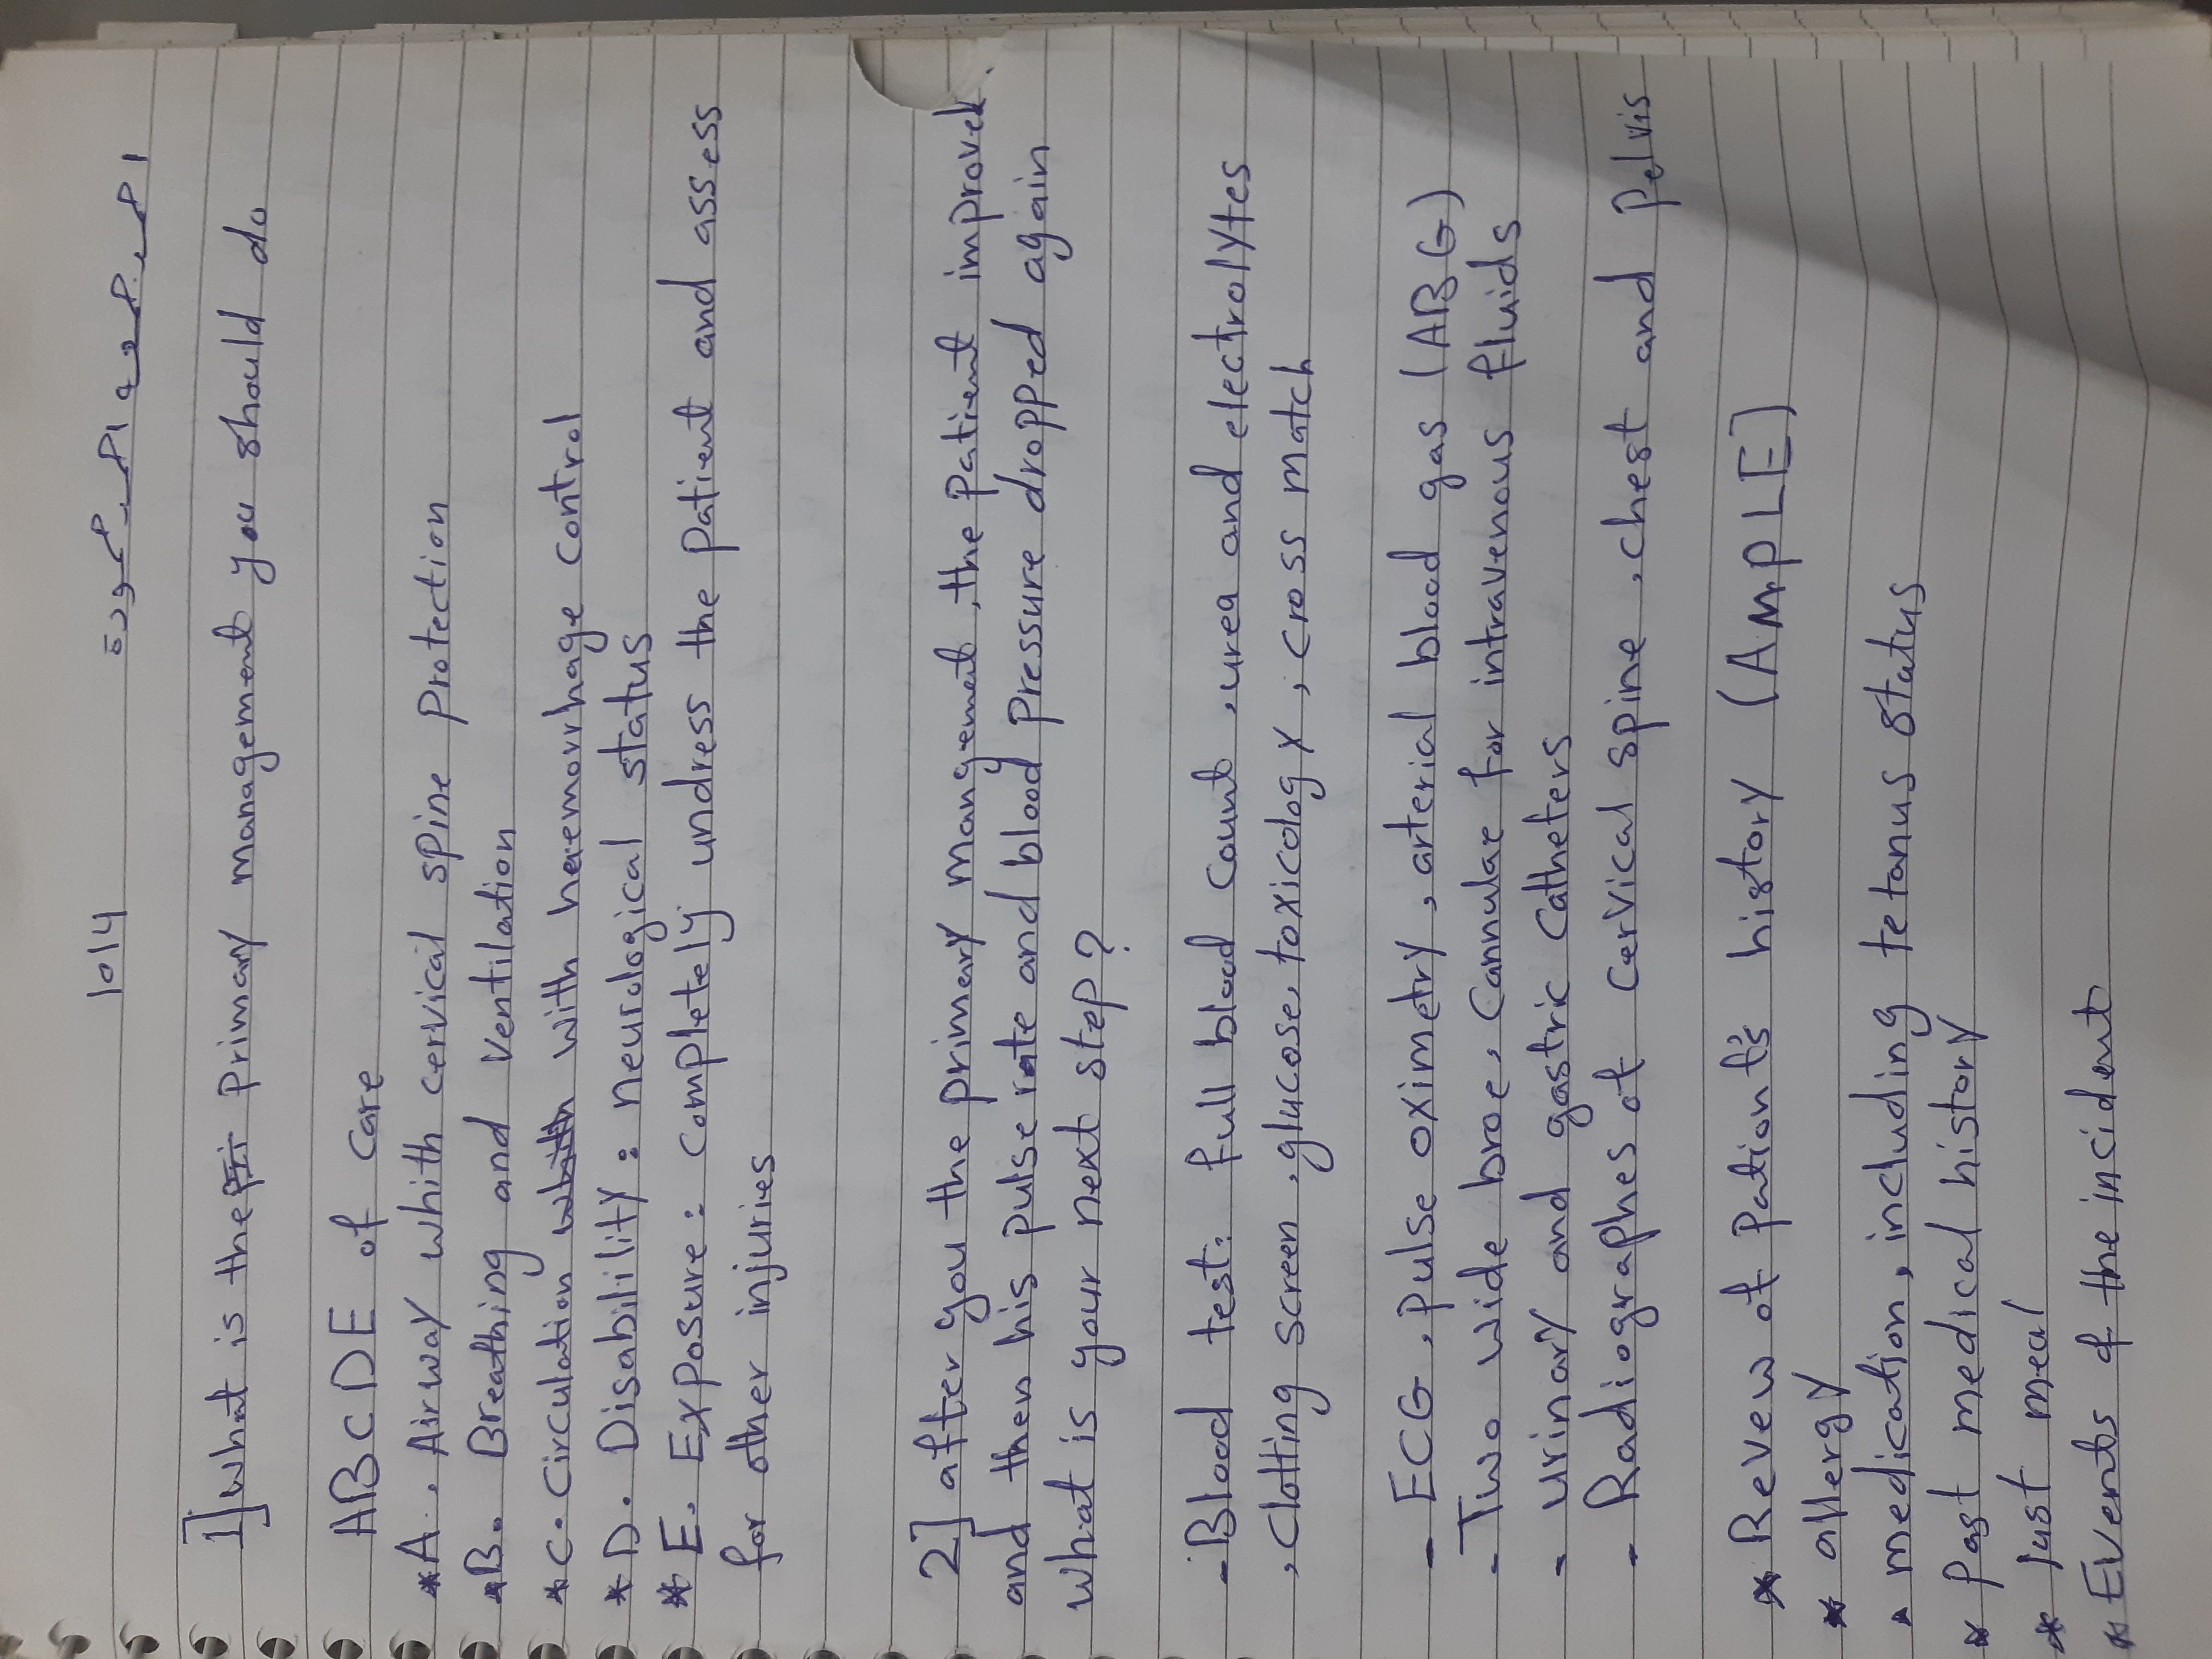 1014
1] what is the primary management you should do
ABCDE of care
* A. Airway whith cervical spine protection
* B. Breathing and ventilation
* C. Circulation with haemorrhage control
* D. Disability: neurological status
* E. Exposure: completely undress the patient and assess
for other injuries
2] after you the primary management, the patient improved
and then his pulse rate and blood pressure dropped again
what is your next step?
- Blood test: full blood count, urea and electrolytes
, clotting screen, glucose, toxicology, cross match
- ECG, pulse oximetry, arterial blood gas (ABG)
- Two wide broe, cannulae for intravenous fluids
- urinary and gastric catheters
- Radiographes of cervical spine, chest and pelvis
* Revew of Patient's history (AMPLE)
* allergy
* medication, including tetanus status
* Past medical history
* last meal
* Events of the incident